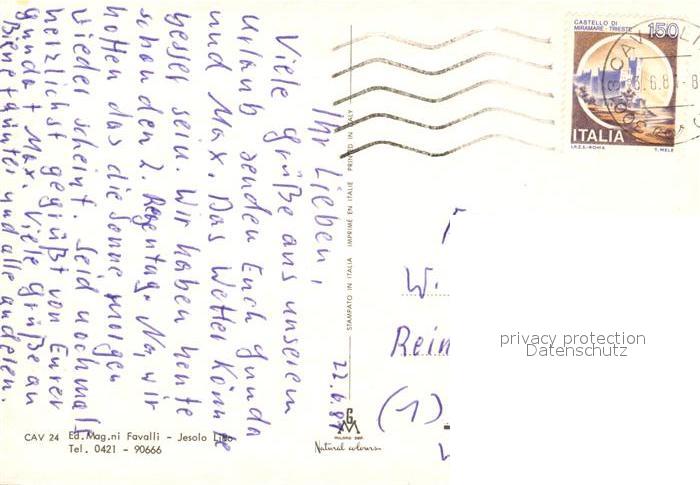 Ihr Lieben,
Viele Grüße aus unserem
Urlaub senden Euch Gunda
und Max. Das Wetter könnte
besser sein. Wir haben heute
schon den 2. Regentag. Na, wir
hoffen das die Sonne morgen
wieder scheint. Seid nochmals
herzlichst gegrüßt von Eurer
Gunda + Max. Viele Grüße an
Günter und alle anderen.
22.6.81
STAMPATO IN ITALIA IMPRIMÉ EN ITALIE PRINTED IN ITALY
CASTELLO DI
MIRAMARE - TRIESTE
150
ITALIA
I.P.Z.S.-ROMA T. MELE
W.
Rein
privacy protection
Datenschutz
(1)
CAV 24 Ed. Mag.ni Favalli - Jesolo Lido
Tel. 0421 - 90666
GM
Natural colours